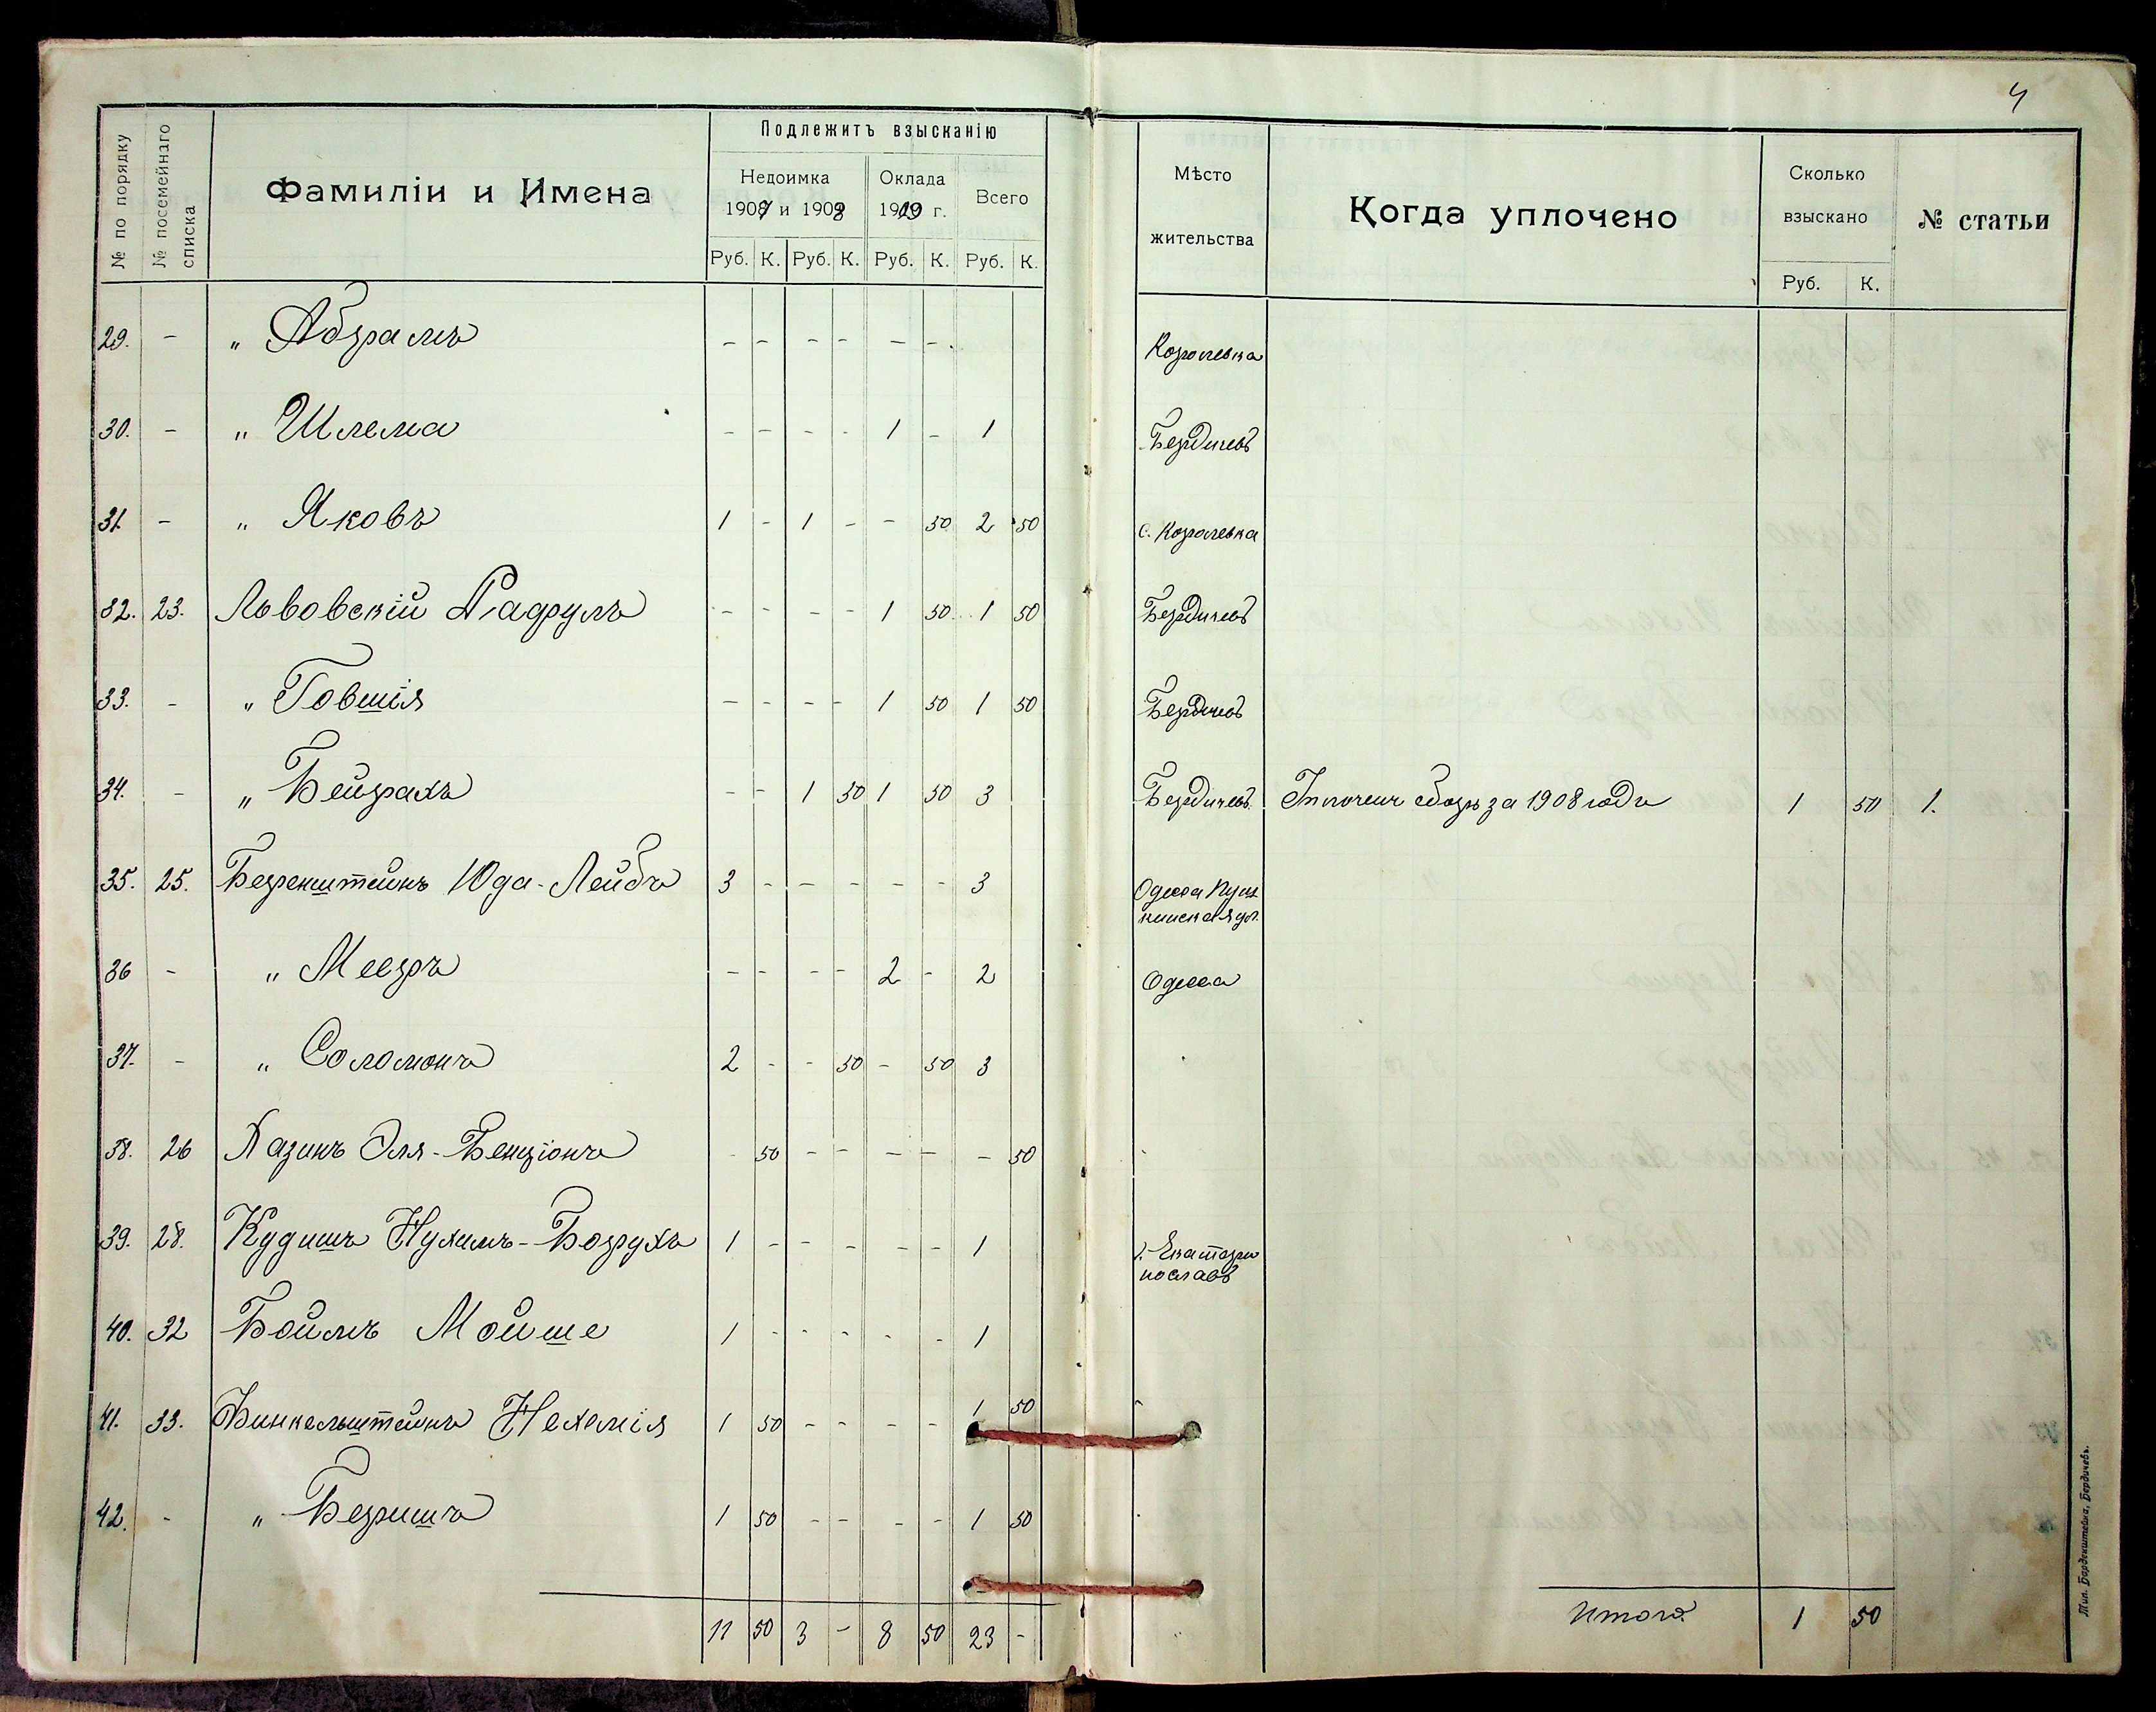 4
№ по порядку
№ посемейнаго списка
Фамиліи и Имена
Подлежитъ взысканію
Недоимка
1907 и 1908
Оклада
1909 г.
Всего
Руб. К. Руб. К. Руб. К. Руб. К.
Мѣсто
жительства
Когда уплочено
Сколько
взыскано
Руб. К.
№ статьи
29. - „ Абрамъ - - - - - - Королевка
30. - „ Шлема - - - - 1 - 1 Бердичевъ
31. - „ Яковъ 1 - 1 - - 50 2 50 с. Королевка
32. 23. Львовскій - - - - 1 50 1 50 Бердичевъ
33. - „ Говшія - - - - 1 50 1 50 Бердичевъ
34. - „ Бейрахъ - - 1 50 1 50 3 Бердичевъ сборъ за 1908 годъ 1 50 1.
35. 25. Беренштейнъ Юда-Лейбъ 3 - - - - - 3 Одесса Пуш
кинская ул.
36 - „ Мееръ - - - - 2 - 2 Одесса
37. - „ Соломонъ 2 - - 50 - 50 3
38. 26 Хазинъ Эля-Бенціонъ - 50 - - - - - 50
39. 28. Кудишъ Нухимъ-Борухъ 1 - - - - - 1 г. Екатери
нославъ
40. 32 Боймъ Мойше 1 - - - - - 1
41. 33. Финкельштейнъ Нехемія 1 50 - - - - 1 50
42. - „ Беришъ 1 50 - - - - 1 50
11 50 3 - 8 50 23 -
Итого 1 50
Тип. Берденштейна, Бердичевъ.